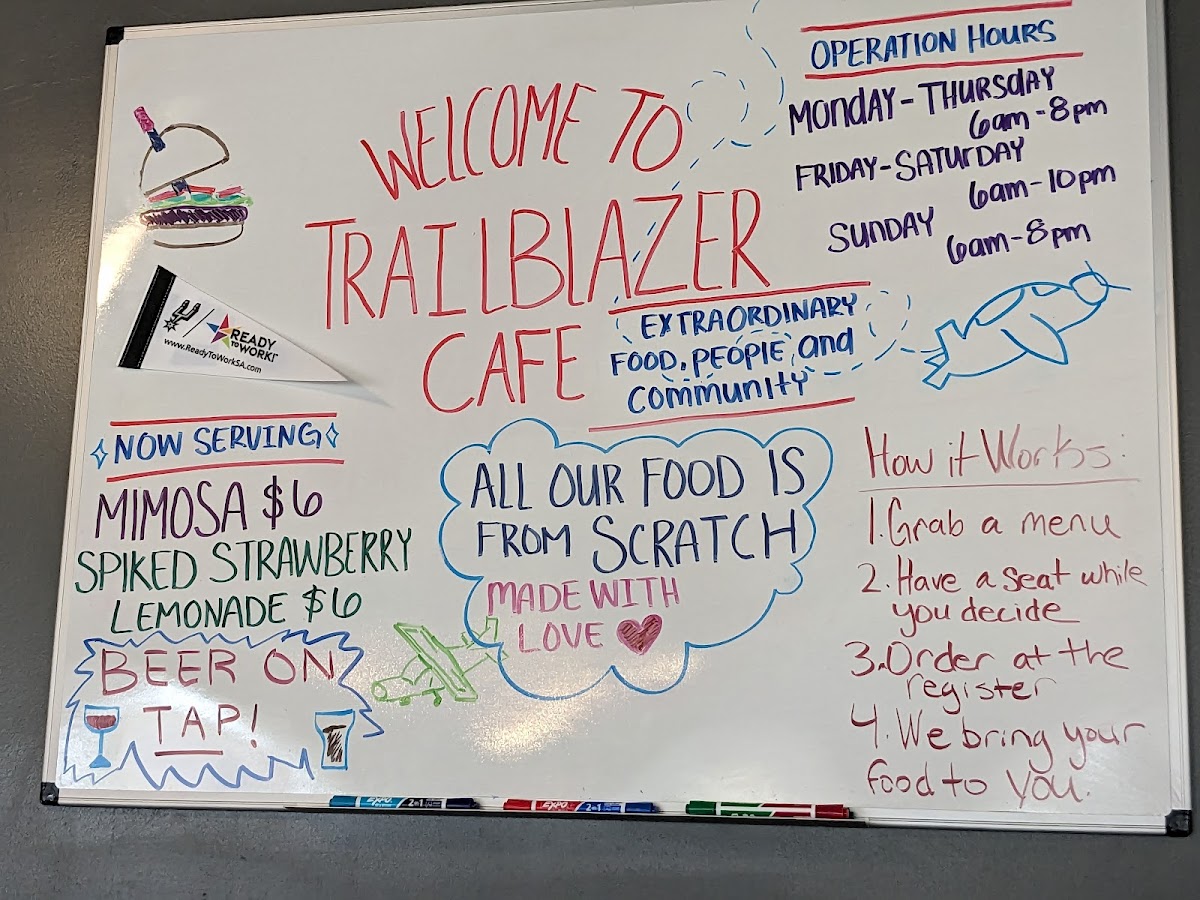 WELCOME TO
TRAILBLAZER
CAFE
EXTRAORDINARY
FOOD, PEOPLE, and
community
OPERATION HOURS
MONDAY - THURSDAY
6am - 8pm
FRIDAY - SATURDAY
6am - 10pm
SUNDAY
6am - 8pm
READY
TO WORK!
www.ReadyToWorkSA.com
NOW SERVING
MIMOSA $6
SPIKED STRAWBERRY
LEMONADE $6
BEER ON
TAP!
ALL OUR FOOD IS
FROM SCRATCH
MADE WITH
LOVE
How it Works:
1. Grab a menu
2. Have a seat while
you decide
3. Order at the
register
4. We bring your
food to you.
EXPO 2in1
EXPO 2in1